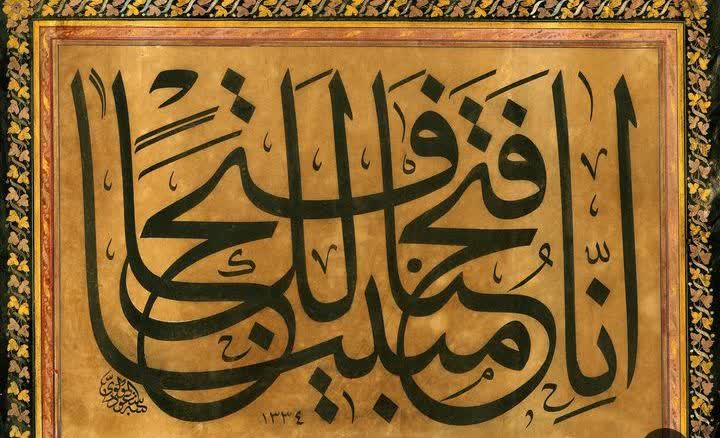 إِنَّا فَتَحْنَا لَكَ فَتْحًا مُبِينًا
١٣٣٤